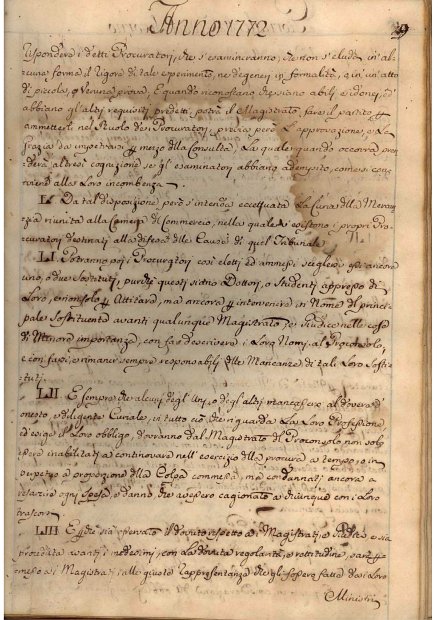 Anno 1772
29
risponder i detti Procuratori, che s'esamineranno, che non s'eluda in al-
cuna forma il rigore di tale esperimento, ne degeneri in formalità, o in un'atto
di piccola, o veruna prova, E quando riconoscano che siano abili e idonei, ed
abbiano gl'altri requisiti predetti, potrà il Magistrato fare il partito p
ammetterli nel Ruolo dei Procuratori, previa però l'approvazione, o la
grazia da impetrarsi p mezzo della Consulta, La quale quando occorra pren-
derà altresì cognizione se gl'esaminatori abbiano adempito, come si con-
viene alla Loro incombenza.
L. Da tal disposizione però s'intende eccettuata La Curia della Mercan-
zia riunita alla Camera di Commercio, nella quale esistono i propri Pro-
curatori destinati alla difesa delle Cause di quel Tribunale.
LI. Potranno poi i Procuratori così eletti ed ammessi scegliersi ancora
uno, o due Sostituti, purchè questi siano Dottori, o Studenti appresso di
Loro, e non solo p Attitare, ma ancora p intervenire in Nome del princi-
pale Sostituente avanti qualunque Magistrato, e Giudice nelle cose
di Minore importanza, con far descrivere i Loro Nomi al Proconsolo,
e con farsi, e rimanere sempre responsabili delle Mancanze di tali Loro Sosti-
tuti.
LII. E sempre che alcuni degl'Uni, o degl'altri mancassero al dovere d'
onesto, e diligente Curiale, in tutto ciò che riguarda La Loro Professione
ed esige il Loro obbligo, dovranno dal Magistrato del Proconsolo non solo
essere inabilitati a continovare nell'esercizio della procura a tempo, o in
perpetuo a proporzione della Colpa commessa, ma condannati ancora a
refarcire ogni spesa, e danno, che avessero cagionato a chiunque con i Loro
trascorsi.
LIII. E p che sia osservato il dovuto rispetto ai Magistrati, e Giudici e si
proceda avanti i medesimi, con La dovuta regolarità, e rettitudine, sarà p
messo ai Magistrati, alle giuste rappresentanze che gli fossero fatte dai Loro
Ministri